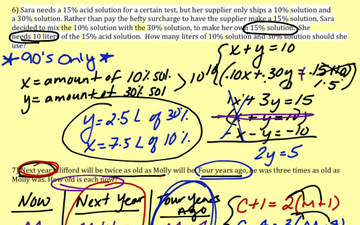 6) Sara needs a 15% acid solution for a certain test, but her supplier only ships a 10% solution and
a 30% solution. Rather than pay the hefty surcharge to have the supplier make a 15% solution, Sara
decided to mix the 10% solution with the 30% solution, to make her own 15% solution. She
needs 10 liters of the 15% acid solution. How many liters of 10% solution and 30% solution should she
use?
x + y = 10
*90's Only*
x = amount of 10% sol.
y = amount of 30% sol
> 10
10 (.10x + .30y = .15(10)
1.5)
1x + 3y = 15
(x + y = 10)
-x - y = -10
2y = 5
y = 2.5 L of 30%
x = 7.5 L of 10%
7) Next year, Clifford will be twice as old as Molly will be. Four years ago, he was three times as old as
Molly was. How old is each now?
Now
Next Year
Four years
Ago
C+1 = 2(M+1)